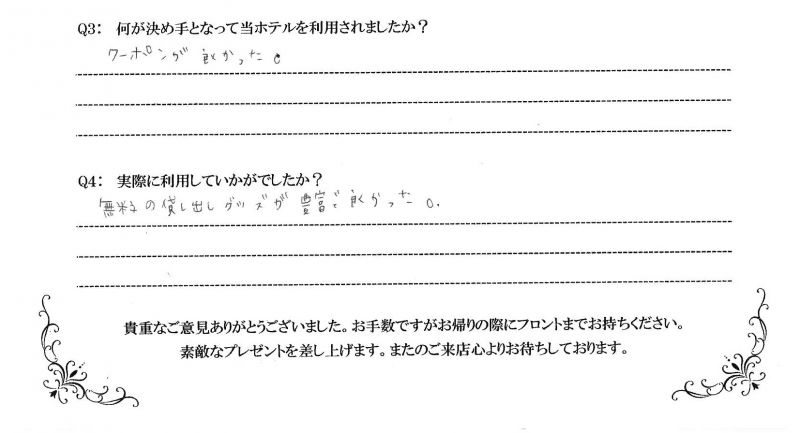 Q3： 何が決め手となって当ホテルを利用されましたか？
クーポンが良かった。
Q4： 実際に利用していかがでしたか？
無料の貸し出しグッズが豊富で良かった。
貴重なご意見ありがとうございました。お手数ですがお帰りの際にフロントまでお持ちください。
素敵なプレゼントを差し上げます。またのご来店心よりお待ちしております。